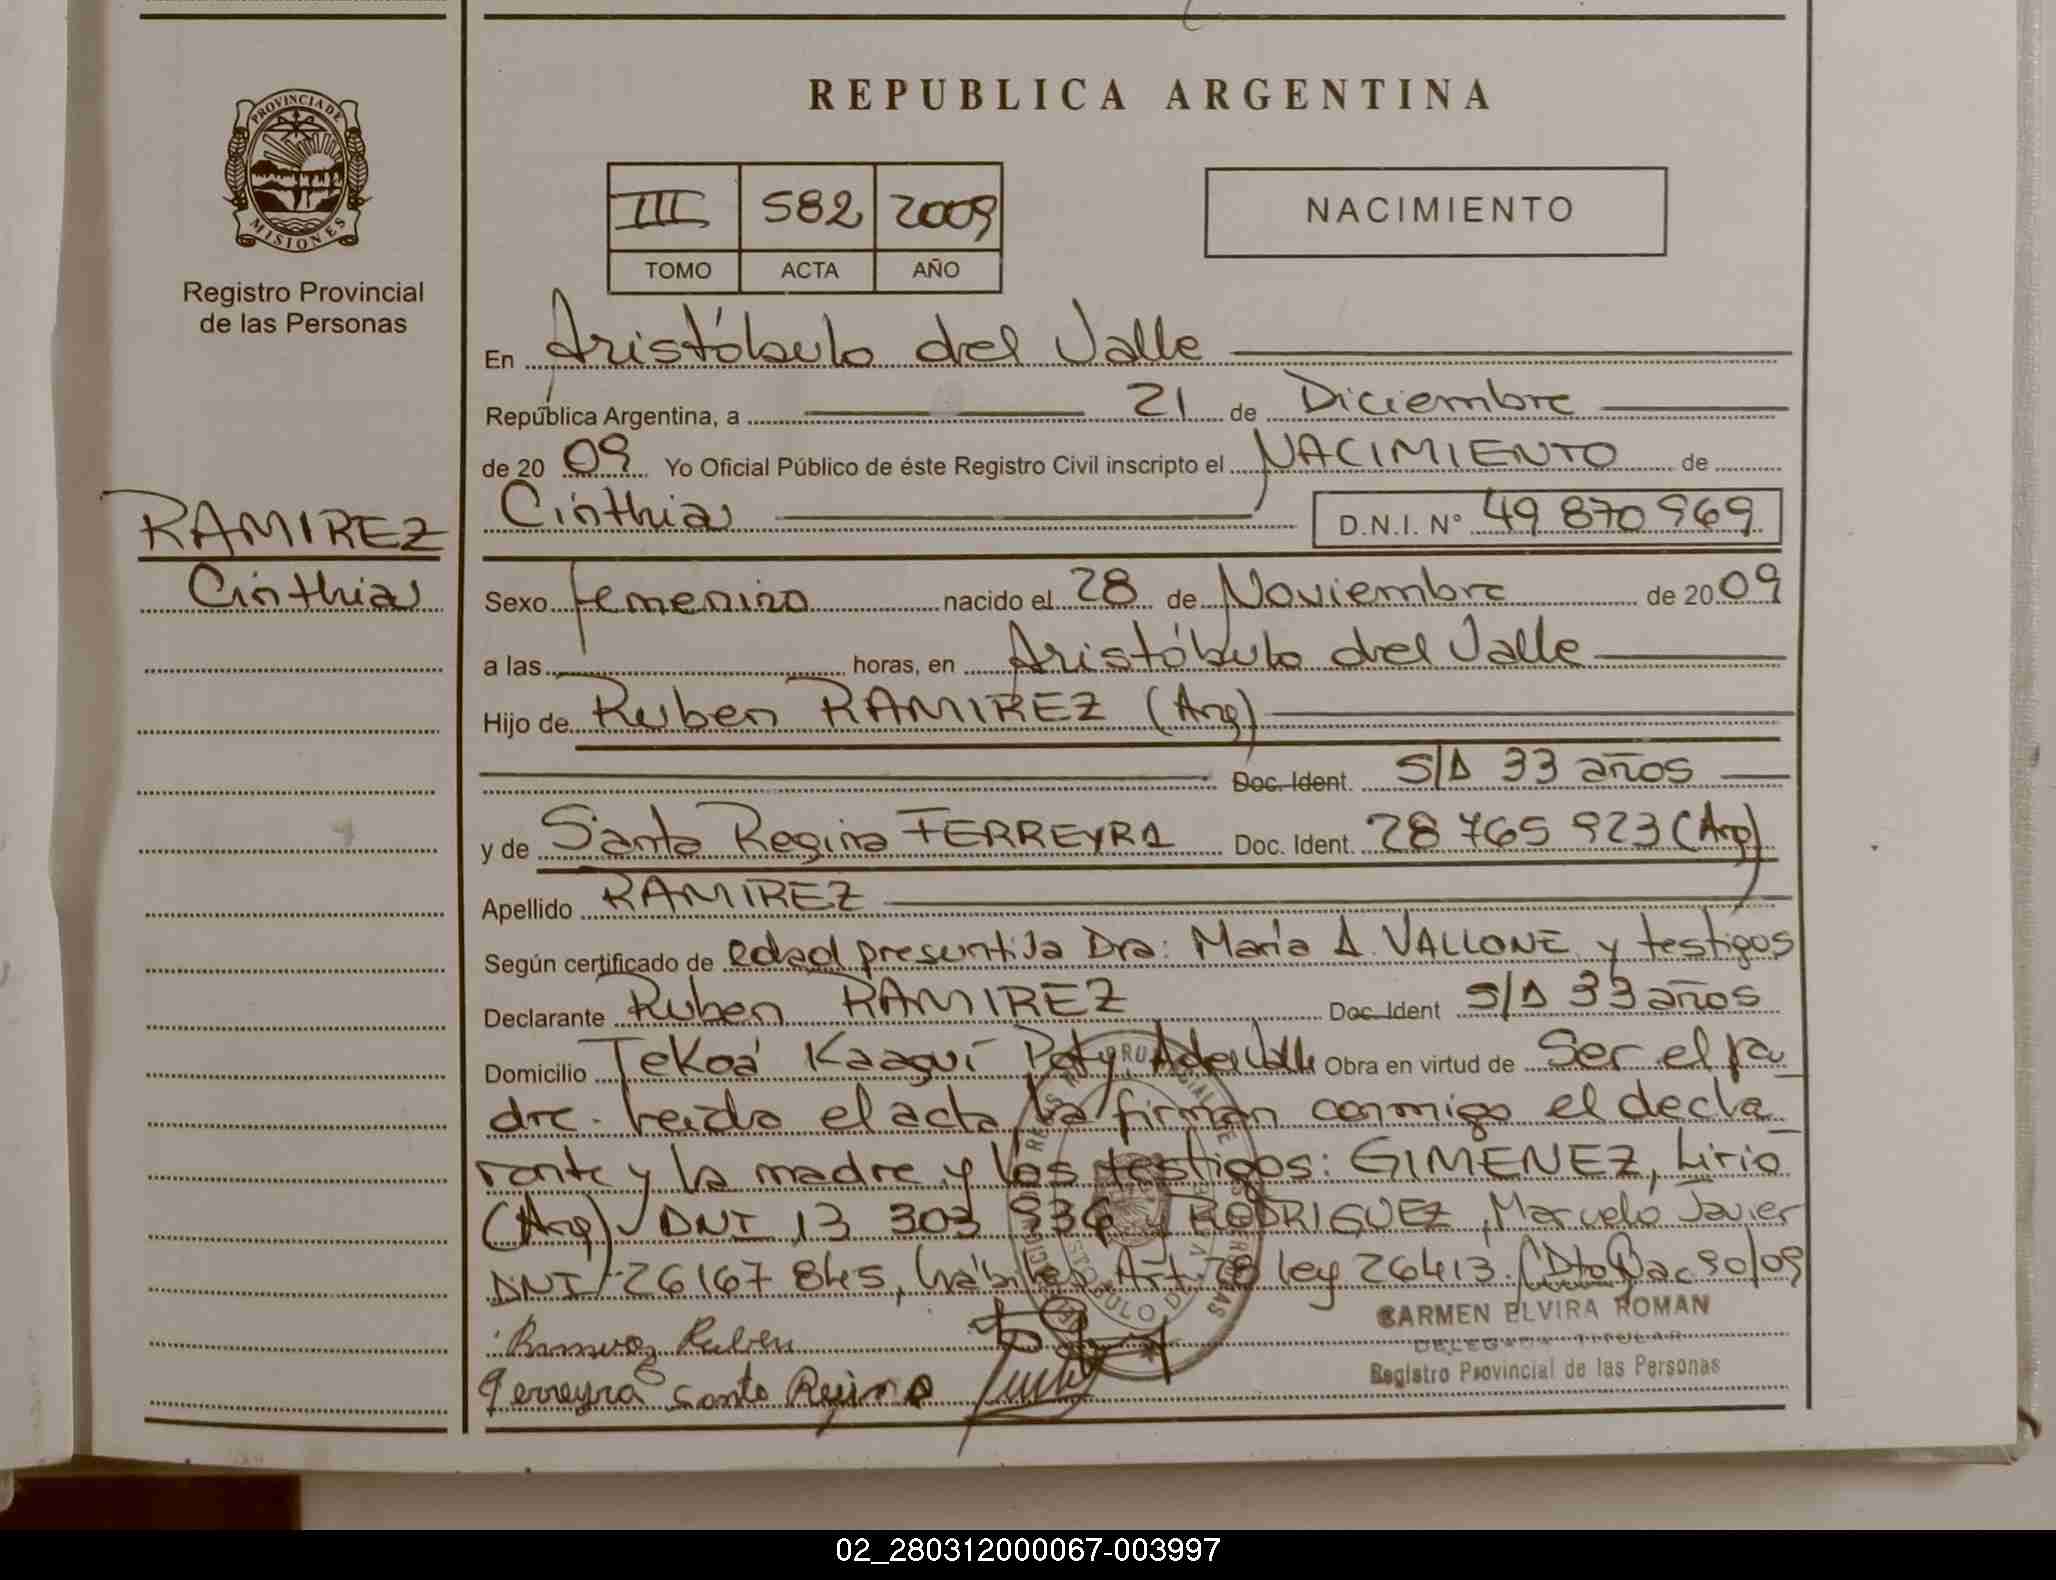 REPUBLICA ARGENTINA
PROVINCIA DE
MISIONES
Registro Provincial
de las Personas
III 582 2009
TOMO ACTA AÑO
NACIMIENTO
En Aristóbulo del Valle
República Argentina, a 21 de Diciembre
de 20 09 Yo Oficial Público de éste Registro Civil inscripto el NACIMIENTO de
Cinthia D.N.I. N° 49 870 969
RAMIREZ
Cinthia
Sexo femenino nacido el 28 de Noviembre de 20 09
a las horas, en Aristóbulo del Valle
Hijo de Ruben RAMIREZ (Arg)
Doc. Ident. S/D 33 años
y de Santa Regina FERREYRA Doc. Ident. 28 765 923 (Arg)
Apellido RAMIREZ
Según certificado de edad presuntiva Dra: María A. VALLONE y testigos
Declarante Ruben RAMIREZ Doc. Ident S/D 33 años
Domicilio Tekoá Kaaguí Poty A del Valle Obra en virtud de Ser el pa
dre. Leída el acta la firman conmigo el decla
rante y la madre y los testigos: GIMENEZ, Lirio
(Arg) DNI 13 303 936 y RODRIGUEZ, Marcelo Javier
DNI 26 167 845, hábiles Art. 78 ley 26413.
CARMEN ELVIRA ROMAN
DELEGADA TITULAR
Registro Provincial de las Personas
Ramirez Ruben
Ferreyra Santa Regina
02_280312000067-003997